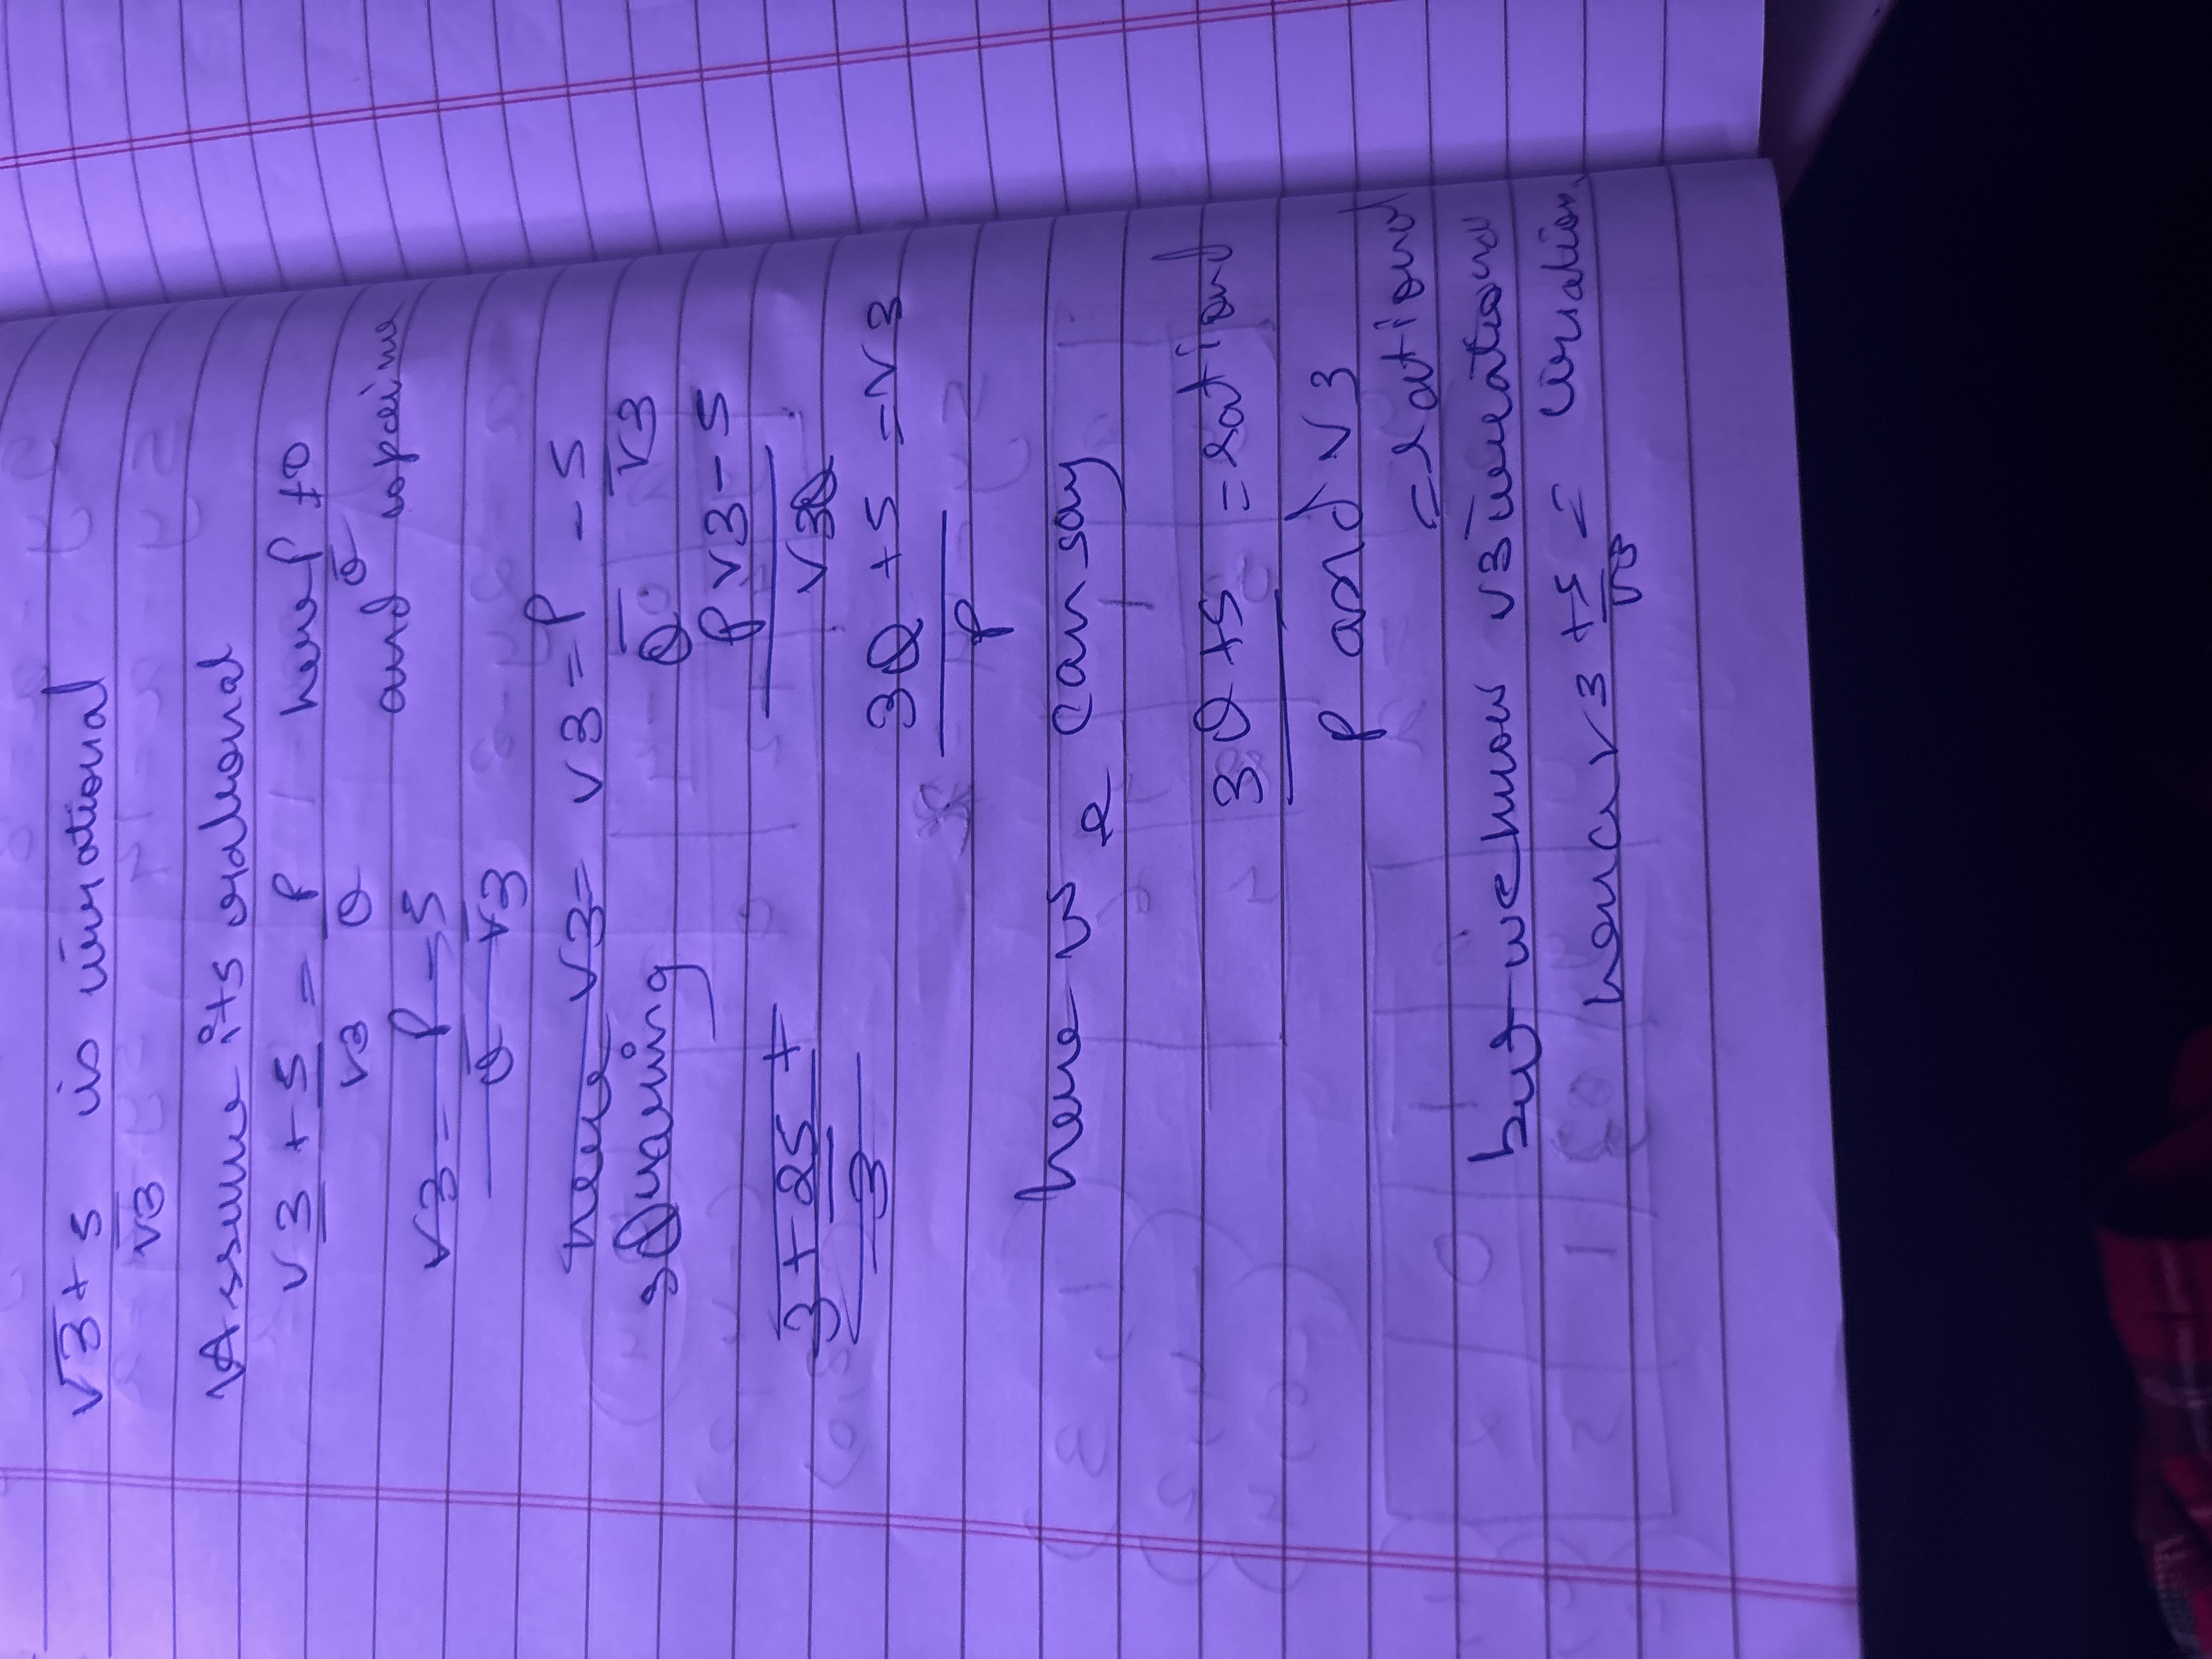 √3 + 5 is irrational
√3
Assume its rational
√3 + 5 = P here P ≠0
√3 Q Q
and coprime
√3 = P - 5
Q √3
here √3 = √3 = P - 5
Q √3
squaring P √3 - 5
√3Q
3 + 25 +
3
3Q + 5 = √3
P
here we can say
3Q + 5 = rational
P and √3
= rational
but we know √3 irrational
hence √3 + 5 = irration
√3